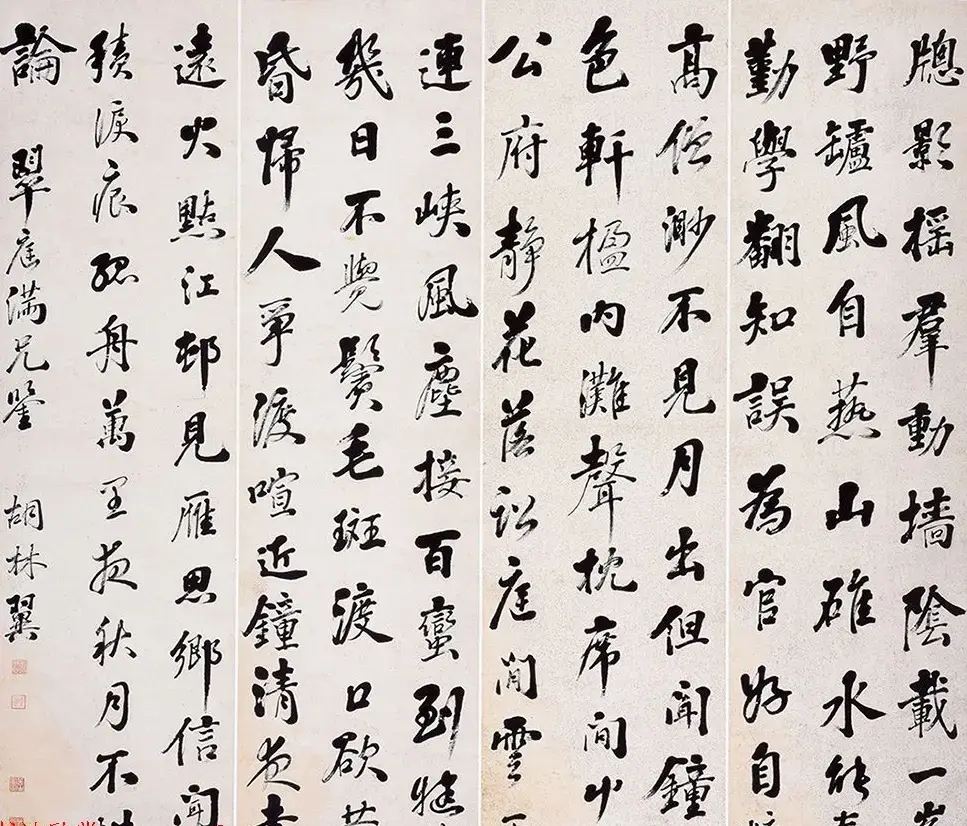 牕影摇羣動墙陰載一
野罏風自爇山碓水能
勤學翻知誤為官好自
高僧渺不見月出但聞鐘
色軒楹内灘聲枕席間
公府静花落訟庭閒雲
連三峽風塵接百蠻到
幾日不覺鬢毛斑渡口欲
昏帰人爭渡喧近鐘清
遠火點江邨見雁思鄉信聞
積淚痕孤舟萬里夜秋月不
論 翠崖满兄鑒 胡林翼